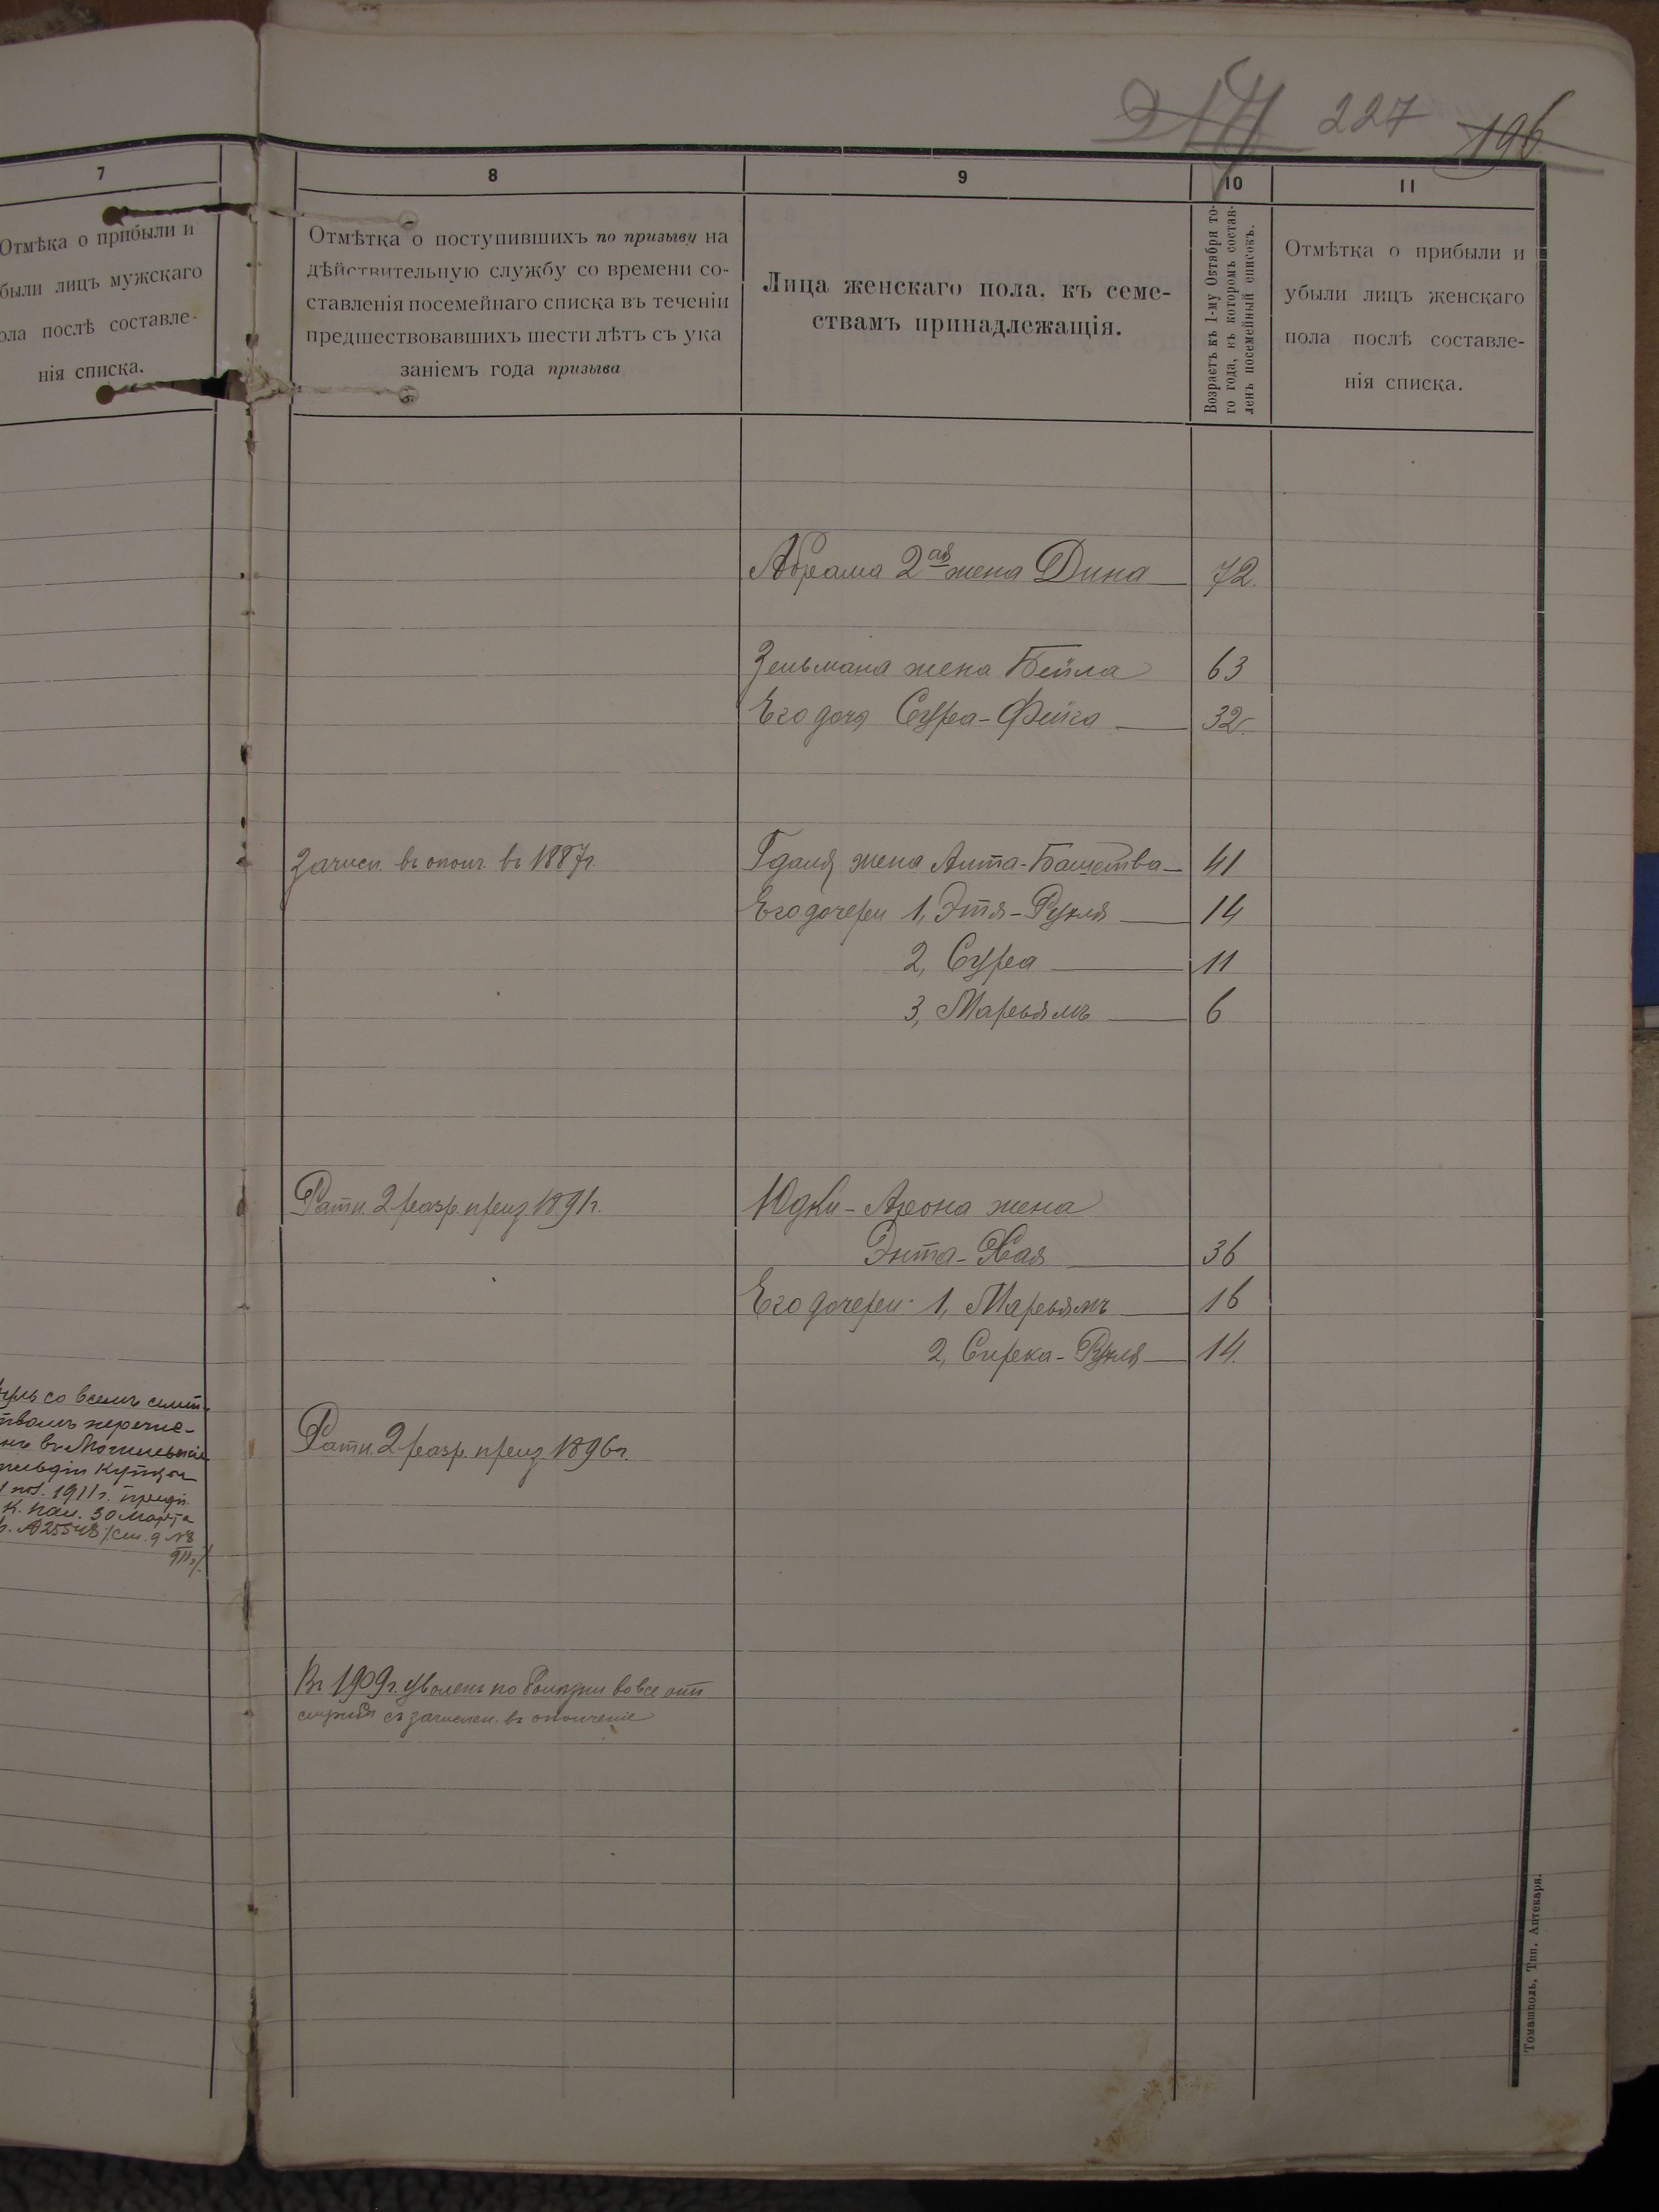 214 227 196
7
Отмѣка о прибыли и
были лицъ мужскаго
ола послѣ составле-
нія списка.
8
Отмѣтка о поступившихъ по призыву на
дѣйствительную службу со времени со-
ставленія посемейнаго списка въ теченіи
предшествовавшихъ шести лѣтъ съ ука
заніемъ года призыва
9
Лица женскаго пола, къ семе-
ствамъ принадлежащія.
10
Возрастъ къ 1-му Октября то-
го года, въ которомъ состав-
ленъ посемейный списокъ.
11
Отмѣтка о прибыли и
убыли лицъ женскаго
пола послѣ составле-
нія списка.
Абрама 2ая жена Дина 72.
Зельмана жена Бейла 63
Его дочь Сура-Фейга 32.
Зачисл. въ ополч. въ 1887г.
Гдаля жена Анта-Башева 41
Его дочери 1, Этя-Рухля 14
2, Сура 11
3, Марьямъ 6
Ратн. 2 разр. приз. 1891г.
Юдки-Арона жена
Энта-Хая 36
Его дочери: 1, Марьямъ 16
2, Сирка-Рухля 14.
со всемъ семей-
ствомъ перечис-
въ Могилевскіе
купцы
1911г.
К. Пал. 30 Марта
№ 25548
Ратн. 2 разр. приз. 1896г.
Въ 1909г. уволенъ по болѣзни вовсе отъ
службы съ зачислен. въ ополченіе
Томашполь, Тип. Аптекаря.